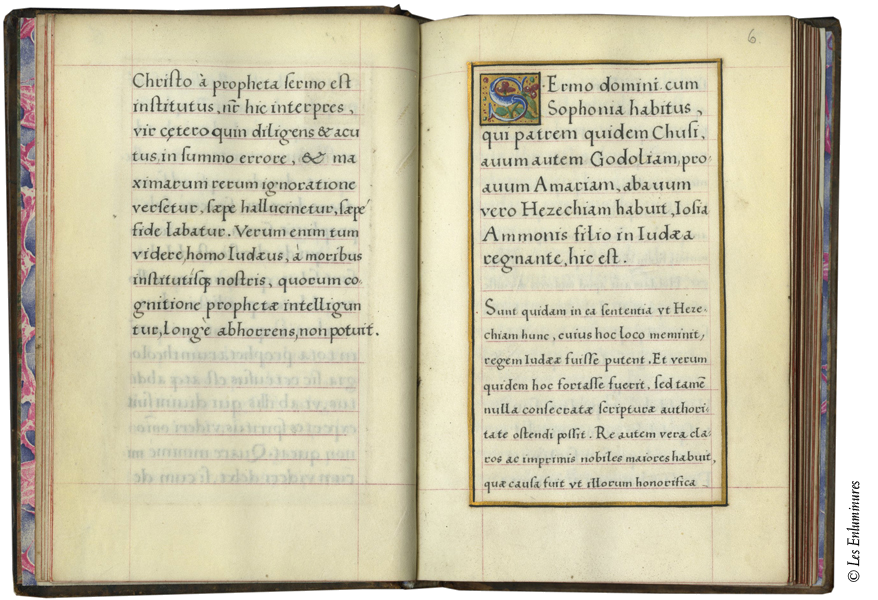 Christo à propheta sermo est
institutus, nr̃ hic interpres,
vir cętero quin diligens & acu
tus, in summo errore, & ma
ximarum rerum ignoratione
versetur, sæpe hallucinetur, sæpe
fide labatur. Verum enim tum
videre, homo Iudæus, à moribus
institutisq; nostris, quorum co-
gnitione prophetæ intelligun
tur, longè abhorrens, non potuit.
6.
SErmo domini cum
Sophonia habitus,
qui patrem quidem Chusi,
auum autem Godoliam, pro-
auum Amariam, abauum
vero Hezechiam habuit, Iosia
Ammonis filio in Iudæa
regnante, hic est.
Sunt quidam in ea sententia vt Heze-
chiam hunc, cuius hoc loco meminit,
regem Iudææ fuisse putent. Et verum
quidem hoc fortasse fuerit, sed tamē
nulla consecratæ scripturæ authori-
tate ostendi possit. Re autem vera cla-
ros ac imprimis nobiles maiores habuit,
quæ causa fuit vt illorum honorifica
© Les Enluminures